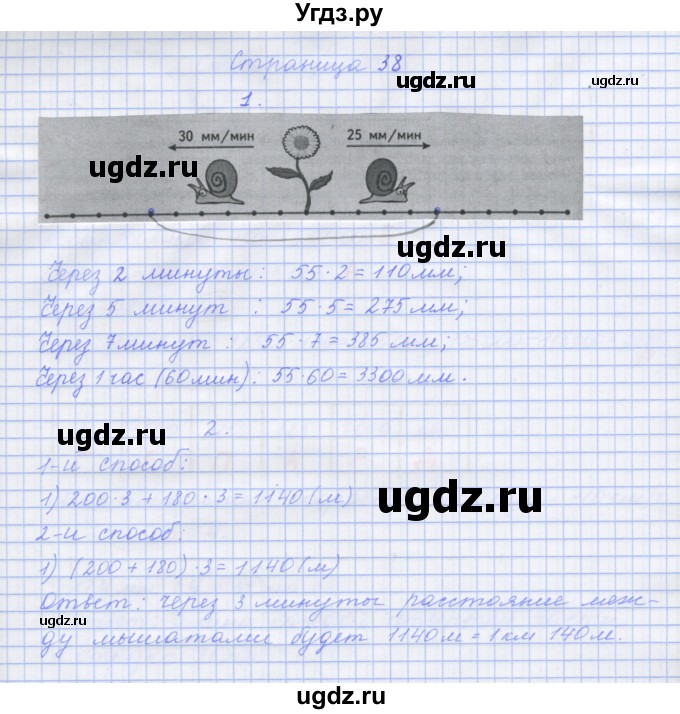 Угдз.ру
Страница 38
ugdz.ru
ugdz.ru
1.
30 мм/мин 25 мм/мин
ugdz.ru
ugdz.ru
ugdz.ru
Через 2 минуты: 55·2=110мм;
Через 5 минут : 55·5=275мм;
Через 7минут : 55·7=385мм;
Через 1час (60мин): 55·60=3300мм.
ugdz.ru
2.
1-й способ:
ugdz.ru
1) 200·3+180·3=1140(м)
2-й способ:
1) (200+180)·3=1140(м)
Ответ: через 3 минуты расстояние меж-
ugdz.ru
ду мышатами будет 1140м=1км 140м.
ugdz.ru
ugdz.ru